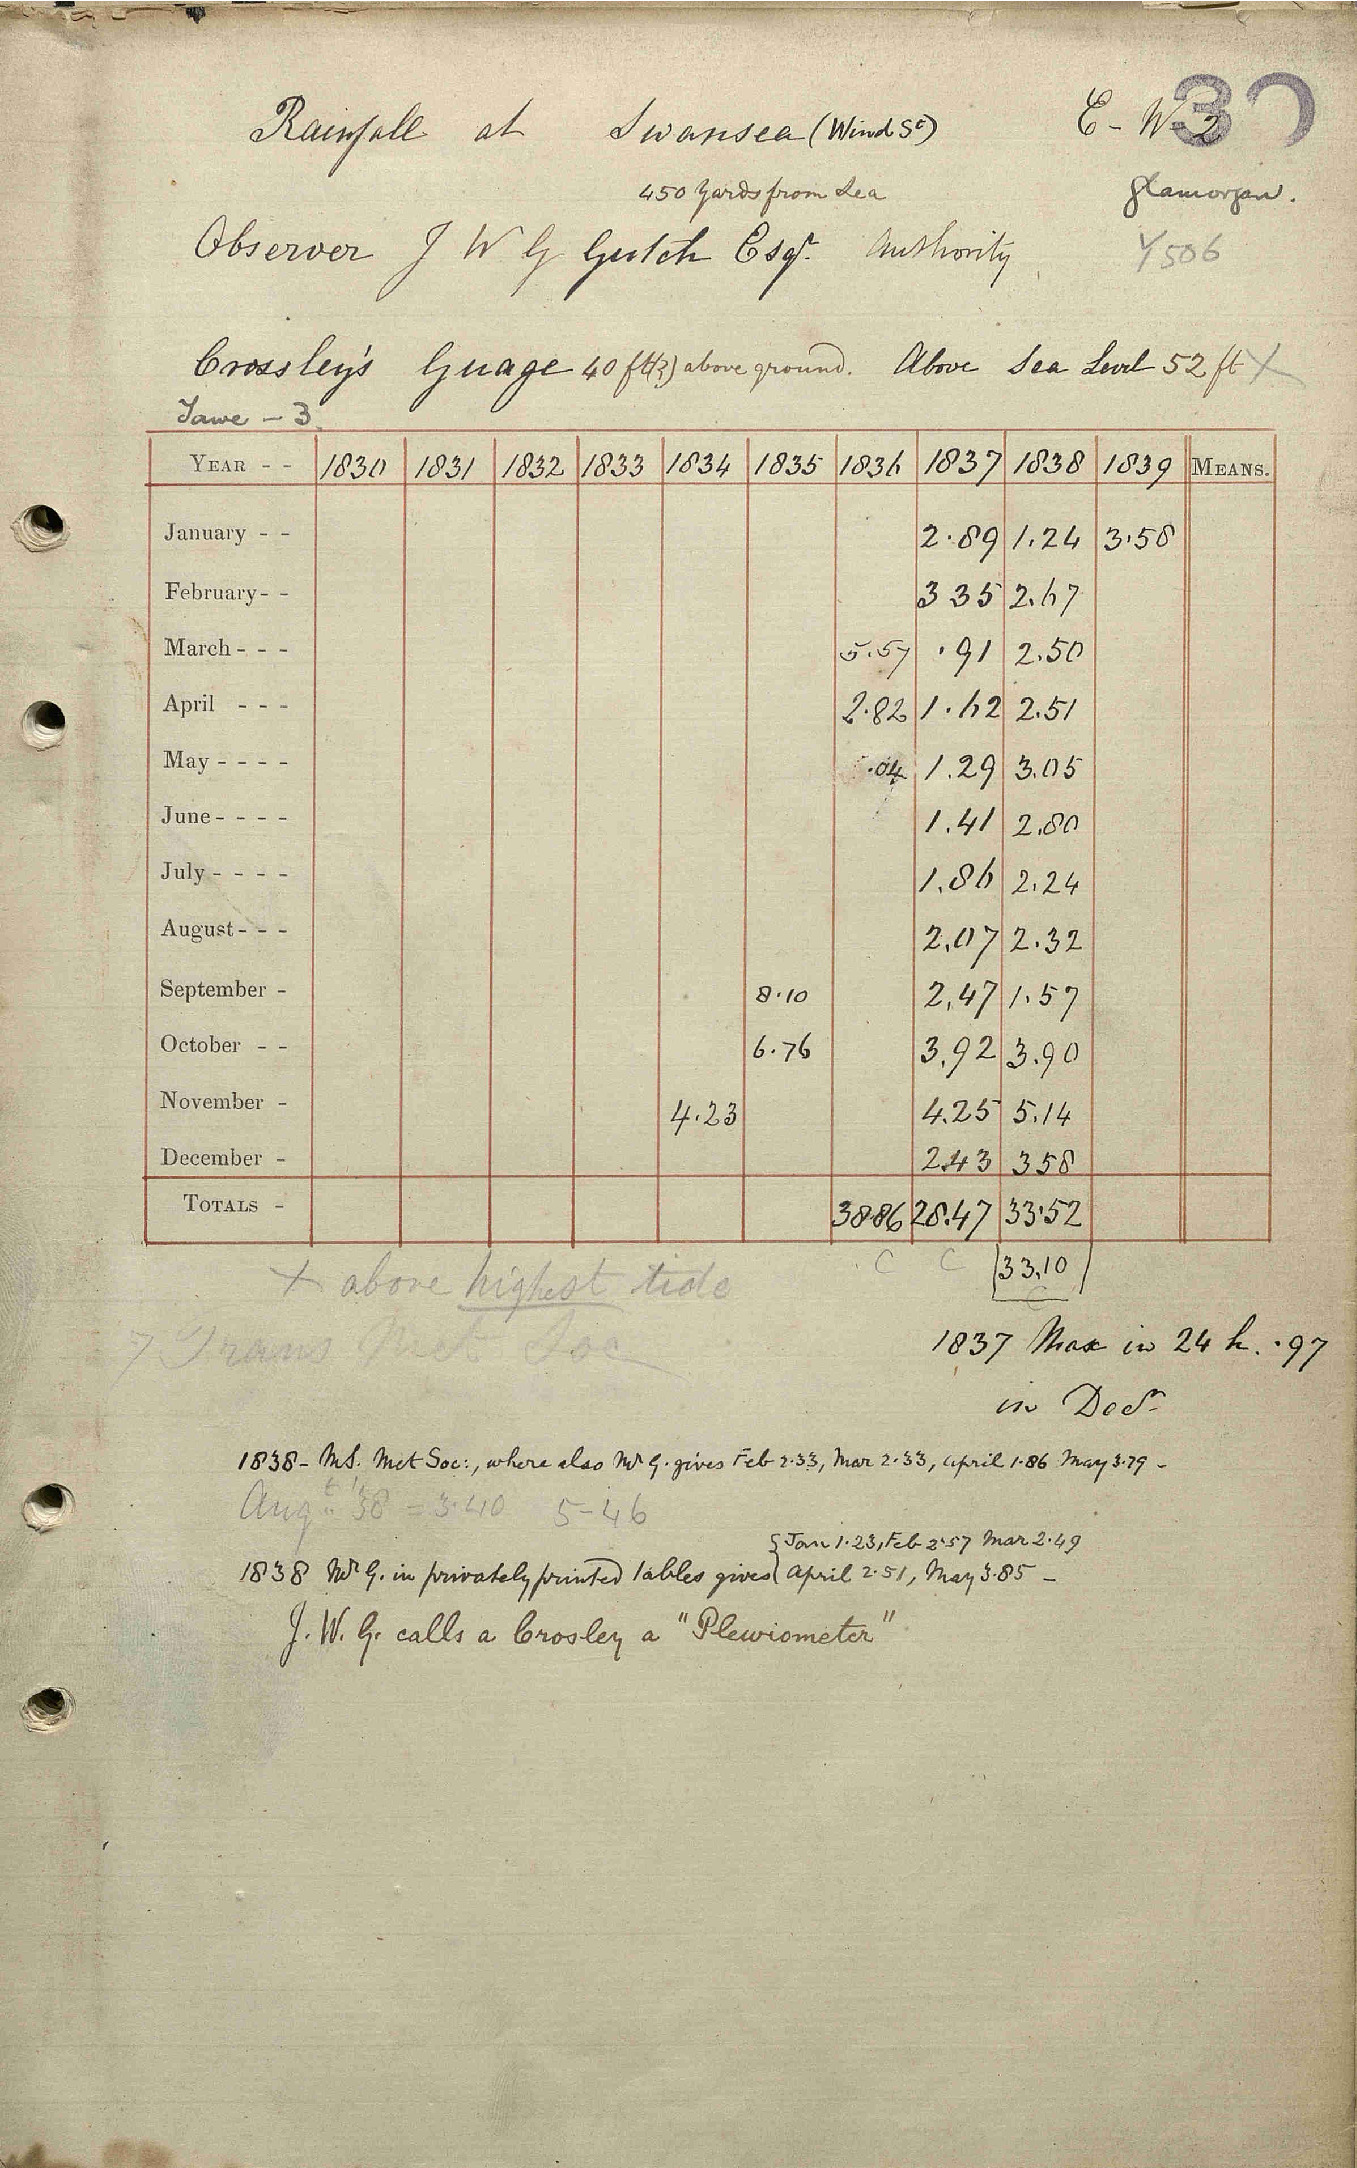 Rainfall at Swansea (Wind St) E-W 2
30
450 Yards from Sea Glamorgan.
Observer J W G Gutch Esqr. Authority
4506
Crossley's Guage 40 ft(?) above ground. Above Sea Level 52 ft X
Tawe - 3
YEAR - - 1830 1831 1832 1833 1834 1835 1836 1837 1838 1839 MEANS.
January - - 2.89 1.24 3.58
February - - 3 35 2.67
March - - - 5.57 .91 2.50
April - - - 2.82 1.62 2.51
May - - - - .04 1.29 3.05
June - - - - 1.41 2.80
July - - - - 1.86 2.24
August - - - 2.07 2.32
September - 8.10 2.47 1.57
October - - 6.76 3.92 3.90
November - 4.23 4.25 5.14
December - 2.43 3 58
TOTALS - 38.86 28.47 33.52
C C 33.10
C
X above highest tide
7 Trans Met Soc
1837 Max in 24 h. .97
in Decr
1838 - MS. Met Soc:, where also Mr G. gives Feb 2.33, Mar 2.33, April 1.86 May 3.79 -
Augt '38 = 3.40 5-46
Jan 1.23, Feb 2.57 Mar 2.49
1838 Mr G. in privately printed tables gives April 2.51, May 3.85 -
J. W. G. calls a Crosley a "Plewiometer"